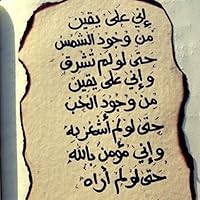 إني على يقين
من وجود الشمس
حتى لو لم تشرق
وإني على يقين
من وجود الحب
حتى لو لم أشعر به
وإني مؤمن بالله
حتى لو لم أراه